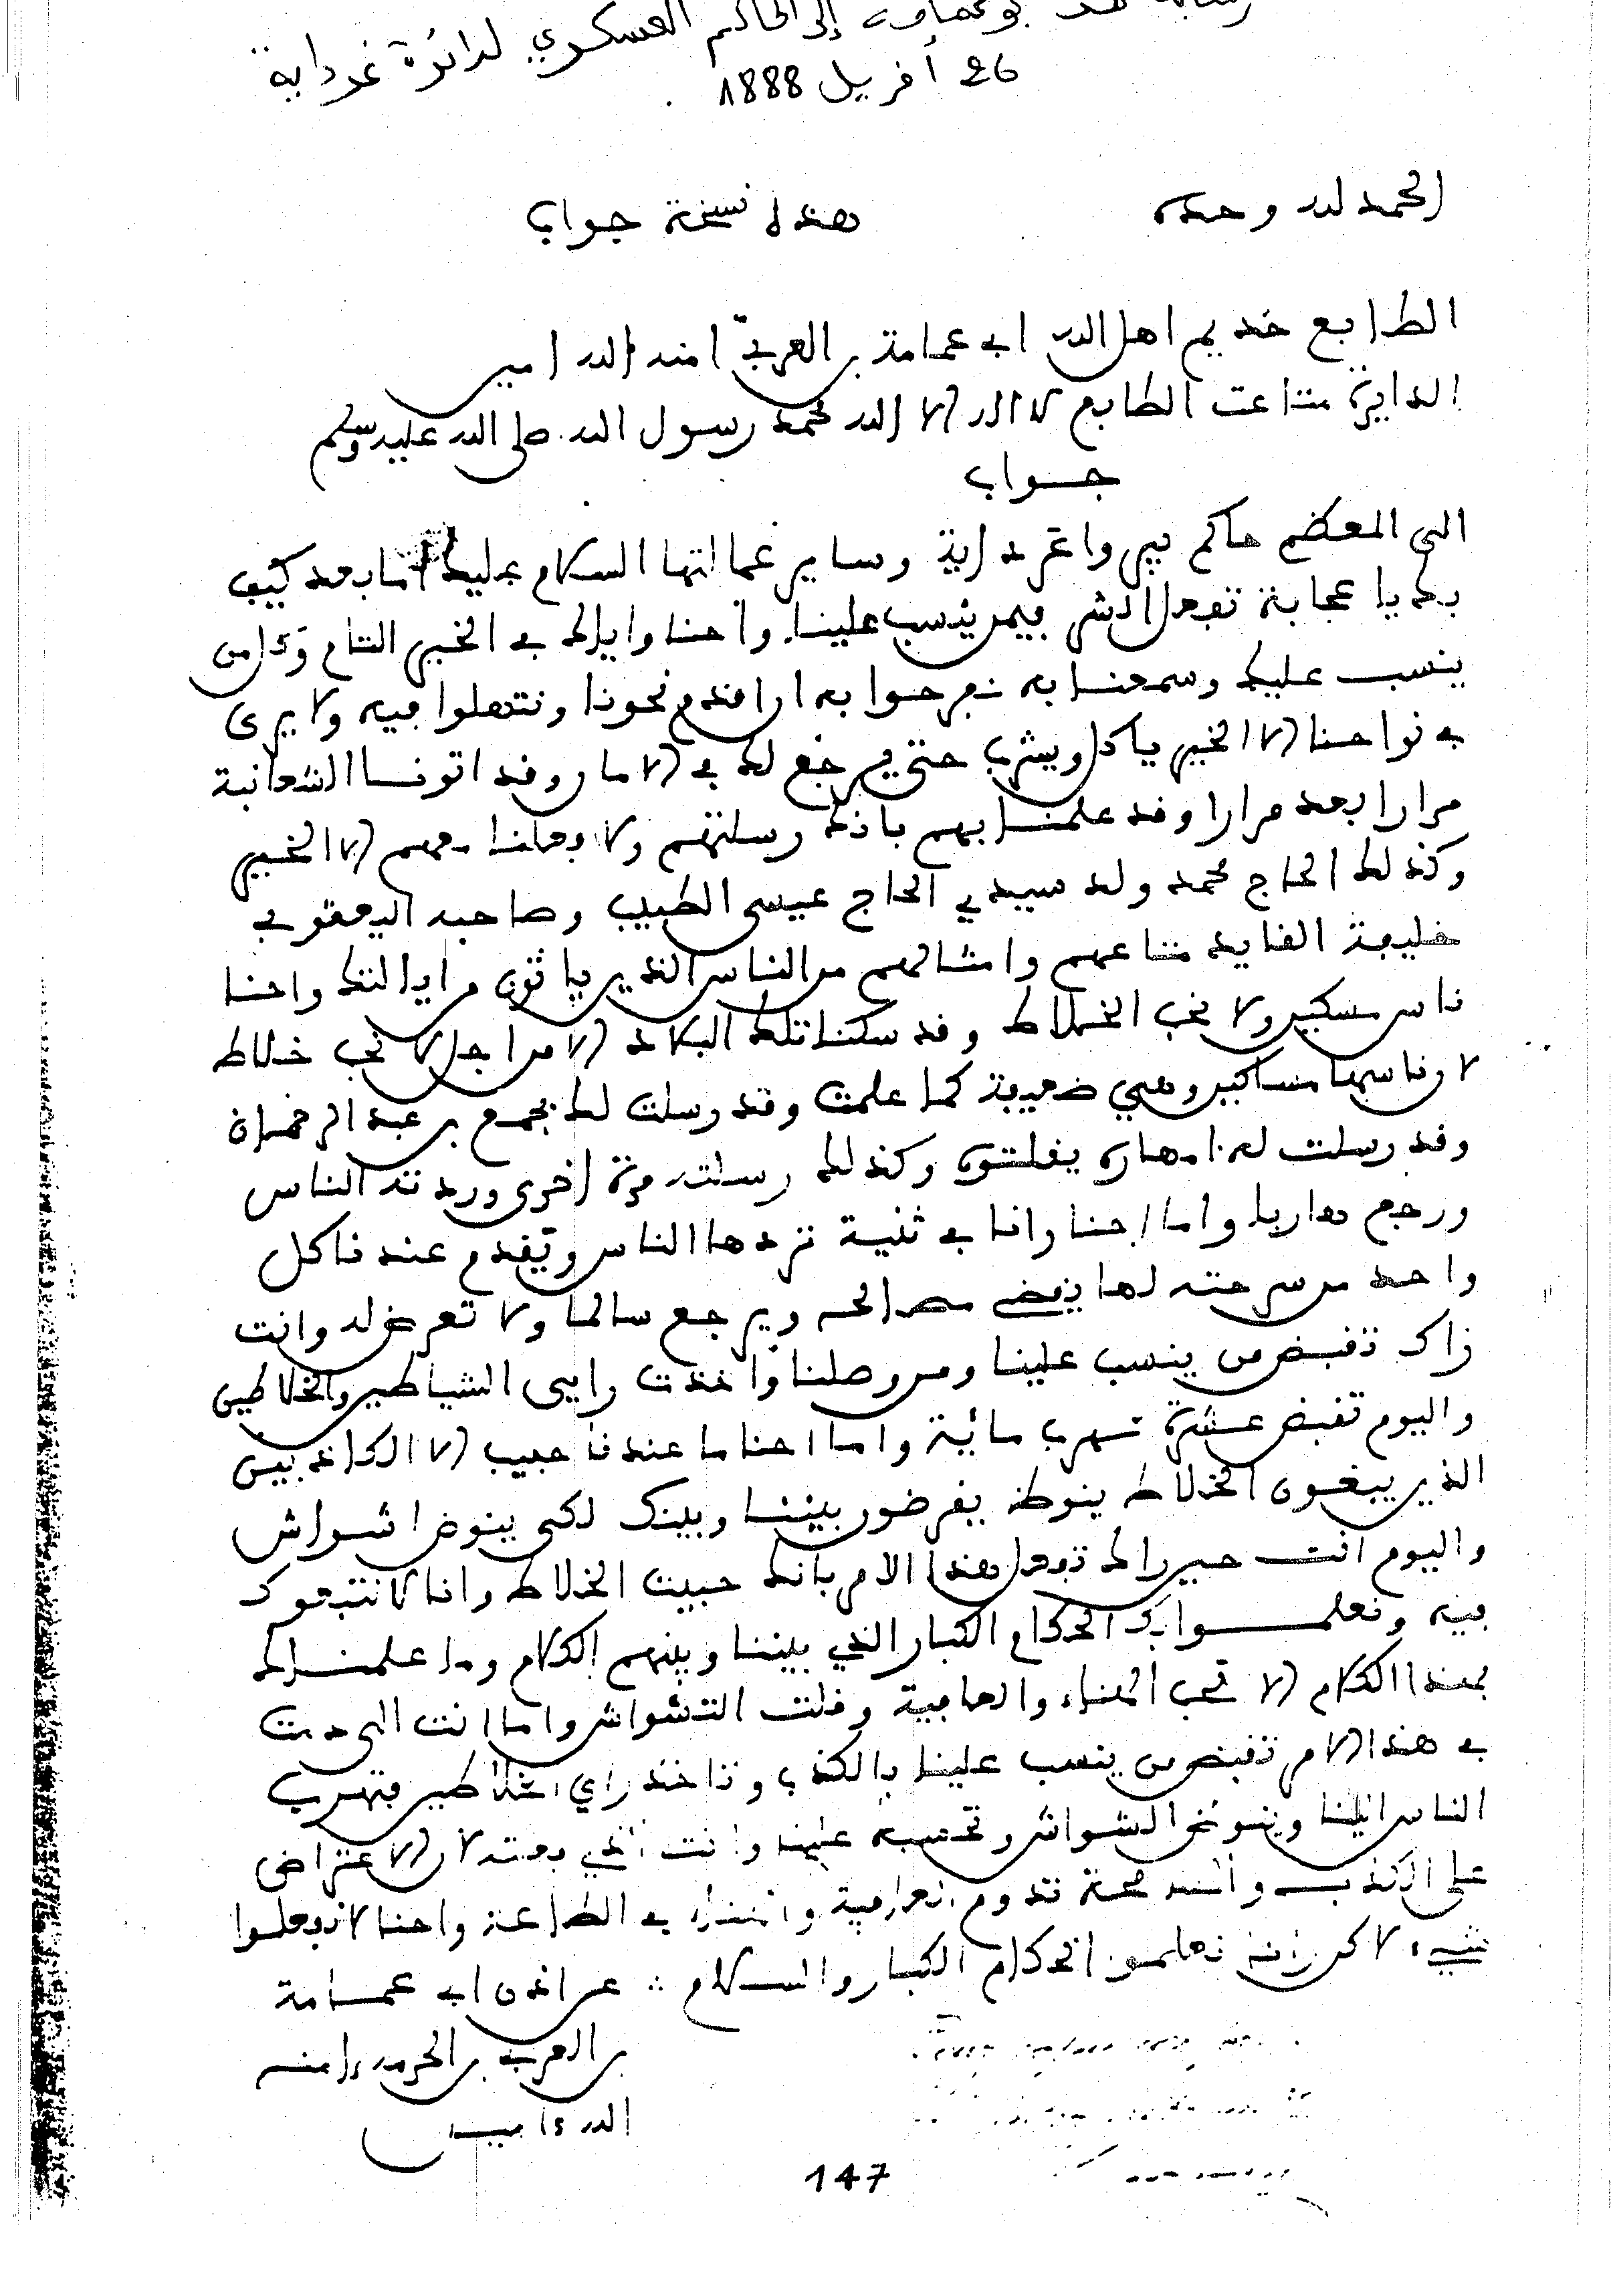 بوعمامة إلى الحاكم العسكري لدائرة غرداية
26 أفريل 1888 .
الحمد لله وحده هذه نسخة جواب
الطابع خديم اهل الله ابي عمامة بن العربي امنه الله امين
الدايرة متاعت الطابع لا اله الا الله محمد رسول الله صلى الله عليه وسلم
جواب
الى المعظم حاكم بيرو اغرداية وساير عمالتها السلام عليك أما بعد كيف
بك يا عجابة تفعل الشر فيمن ينسب علينا وأحنا وايلك في الخير التام وكل من
ينسب عليك وسمعنا به نفرحوا به اذا قدم نحونا ونتهلوا فيه ولا يرى
في نواحنا الا الخير ياكل ويشرب حتى يرجع لك في الامان وقد اتونا الشعانبة
مرارا بعد مرارا وقد علمنا بهم بانك رسلتهم ولا فعلنا معهم الا الخير
وكذلك الحاج محمد ولد سيدي الحاج عيسى الطيب وصاحبه اليعقوبي
خليفة القايد متاعهم وامثالهم من الناس الذين ياتون من ايالتك واحنا
ناس مسكين ولا نحب الخلاط وقد سكنا تلك البلاد الا من اجل لا نحب خلاط
لان ناسها مساكين وهي ضعيفة كما علمت وقد رسلت لك بجمع بن عبد الرحمان
وقد رسلت له امهاري يفلتون وكذلك رسلته مرة اخرى وردته الناس
ورجع هاربا واما احنا رانا في ثنية تردها الناس ويقدم عندنا كل
واحد من سرحته لها يقضي مصرالحه ويرجع سالما ولا تعرض له وانت
راك تقبض من ينسب علينا ومن وصلنا وأخذت رايى الشياطين والخلاطين
واليوم تقبض عشرة تهرب مائية واما احنا ما عندنا حبيب الا الكاذبين
الذين يبغون الخلاط ينوطه يفرضون بيننا وبينك لكى ينوض اشواش
واليوم انت حين راك تفعل هذا الامر بانك حبيت الخلاط وانا لا نتبعوك
فيه ونعلموا بك الحكام الكبار الذي بيننا وبينهم الكلام وما علمناك
بهذا الكلام الا نحب الهناء والعافية وقلت التشواش واما انت الى دمت
في هذا الامر تقبض من ينسب علينا بالكذب وتاخذ راي الخلاطين فتهرب
الناس الينا وينوض الشواش وتحسبه علينا وانت الذي بعته لان الاعتراض
على الكذب والله محمة تدوم العافية والهناء في الطاعة واحنا لا نفعلوا
شيء لاكن انه نعلموا الحكام الكبار والسلام عن اذن ابي عمامة
بن العربي بن الحرمه امنه
الله ءامين
147